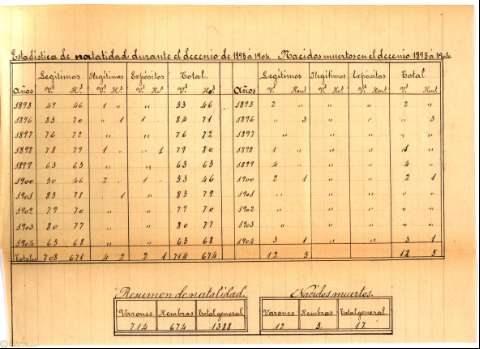 Estadística de natalidad durante el decenio de 1895 á 1904. Nacidos muertos en el decenio 1895 á 1904
Legítimos Ilegítimos Expósitos Total. Legítimos Ilegítimos Expósitos Total
Años V.s H.s V.s H.s V.s H.s V.s H.s Años V.s Hem.s V.s Hem.s V.s Hem.s V.s Hem.s
1895 46 1 " " 53 46 1895 2 " " " 2 "
1896 83 70 " 1 1 " 84 71 1896 " 3 " " " 3
1897 76 72 " " 76 72 1897 " " " "
1898 78 79 1 " " 1 79 80 1898 1 " " " "
1899 63 63 " " 63 63 1899 4 " " " 4 "
1900 50 46 2 " 1 " 53 46 1900 2 1 " " 2 1
1901 83 " 1 " 83 1901 " " " "
1902 79 70 " " 79 70 1902 " " " "
1903 80 77 " " 80 77 1903 " " " "
1904 63 68 " " 63 68 1904 3 1 " " 3 1
Totales 708 671 4 2 2 1 714 674 12 5 12 5
Resumen de natalidad. Nacidos muertos.
Varones Hembras Total general Varones Hembras Total general
714 674 1388 12 5 17